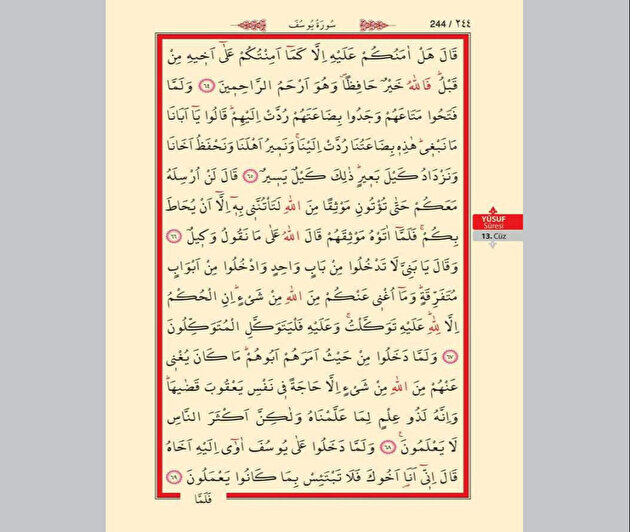 244 / ٢٤٤
سُورَةُ يُوسُفَ
قَالَ هَلْ اٰمَنُكُمْ عَلَيْهِ اِلَّا كَمَٓا اَمِنْتُكُمْ عَلٰٓى اَخ۪يهِ مِنْ
قَبْلُۜ فَاللّٰهُ خَيْرٌ حَافِظًاۖ وَهُوَ اَرْحَمُ الرَّاحِم۪ينَ ﴿٦٤﴾ وَلَمَّا
فَتَحُوا مَتَاعَهُمْ وَجَدُوا بِضَاعَتَهُمْ رُدَّتْ اِلَيْهِمْۜ قَالُوا يَٓا اَبَانَا
مَا نَبْغ۪يۜ هٰذِه۪ بِضَاعَتُنَا رُدَّتْ اِلَيْنَاۚ وَنَم۪يرُ اَهْلَنَا وَنَحْفَظُ اَخَانَا
وَنَزْدَادُ كَيْلَ بَع۪يرٍۜ ذٰلِكَ كَيْلٌ يَس۪يرٌ ﴿٦٥﴾ قَالَ لَنْ اُرْسِلَهُ
مَعَكُمْ حَتّٰى تُؤْتُونِ مَوْثِقًا مِنَ اللّٰهِ لَتَأْتُنَّن۪ي بِه۪ٓ اِلَّٓا اَنْ يُحَاطَ
بِكُمْۚ فَلَمَّٓا اٰتَوْهُ مَوْثِقَهُمْ قَالَ اللّٰهُ عَلٰى مَا نَقُولُ وَك۪يلٌ ﴿٦٦﴾
وَقَالَ يَا بَنِيَّ لَا تَدْخُلُوا مِنْ بَابٍ وَاحِدٍ وَادْخُلُوا مِنْ اَبْوَابٍ
مُتَفَرِّقَةٍۜ وَمَٓا اُغْن۪ي عَنْكُمْ مِنَ اللّٰهِ مِنْ شَيْءٍۜ اِنِ الْحُكْمُ
اِلَّا لِلّٰهِۜ عَلَيْهِ تَوَكَّلْتُۚ وَعَلَيْهِ فَلْيَتَوَكَّلِ الْمُتَوَكِّلُونَ
﴿٦٧﴾ وَلَمَّا دَخَلُوا مِنْ حَيْثُ اَمَرَهُمْ اَبُوهُمْۜ مَا كَانَ يُغْن۪ي
عَنْهُمْ مِنَ اللّٰهِ مِنْ شَيْءٍ اِلَّا حَاجَةً ف۪ي نَفْسِ يَعْقُوبَ قَضٰيهَاۜ
وَاِنَّهُ لَذُو عِلْمٍ لِمَا عَلَّمْنَاهُ وَلٰكِنَّ اَكْثَرَ النَّاسِ
لَا يَعْلَمُونَ۟ ﴿٦٨﴾ وَلَمَّا دَخَلُوا عَلٰى يُوسُفَ اٰوٰٓى اِلَيْهِ اَخَاهُ
قَالَ اِنّ۪ٓي اَنَا۬ اَخُوكَ فَلَا تَبْتَئِسْ بِمَا كَانُوا يَعْمَلُونَ ﴿٦٩﴾
فَلَمَّا
YÛSUF
Sûresi
13. Cüz